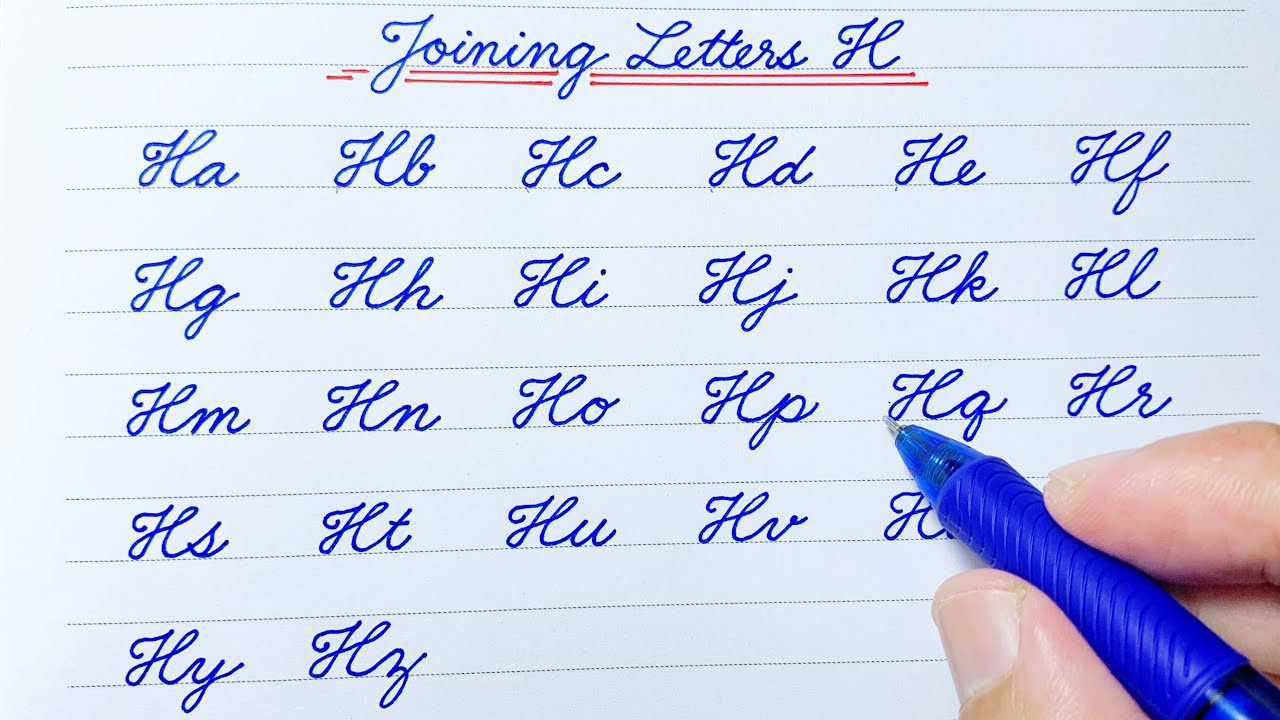 Joining Letters H
Ha Hb Hc Hd He Hf
Hg Hh Hi Hj Hk Hl
Hm Hn Ho Hp Hq Hr
Hs Ht Hu Hv
Hy Hz